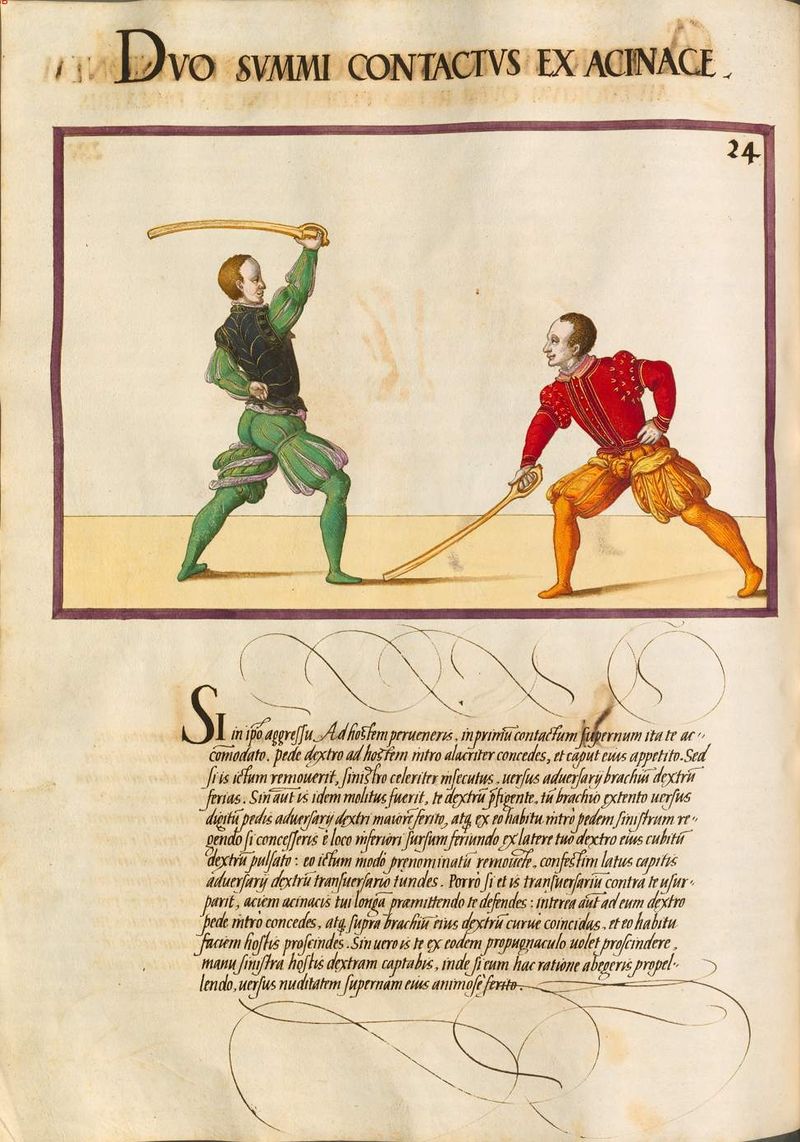 DVO SVMMI CONTACTVS EX ACINACE.
24
SI in ip̃o aggressu. Ad hostem perueneris, in primũ contactum supernum ita te ac⸗
cõmodato. pede dextro ad hostem intro alacriter concedes, et caput eius appetito. Sed
si is ictum remouerit, sinistro celeriter insecutus, uersus aduersarÿ brachiũ dextrũ
ferias. Sin aut̃ is idem molitus fuerit, te dextrũ p̃figente, tũ brachio extento uersus
digitũ pedis aduersarÿ dextri maiorẽ ferito, atq, ex eo habitu intrò pedem sinistrum re⸗
gendo si concesseris è loco inferiori sursum feriundo ex latere tuo dextro eius cubitũ
dextrũ pulsato: eo ictum modò prenominatũ remouete, confestim latus capitis
aduersarÿ dextrũ transuersario tundes. Porrò si et is transuersariũ contra te usur⸗
parit, aciem acinacis tui longã premittendo te defendes: interea aut̃ ad eum dextro
pede intrò concedes, atq, supra brachiũ eius dextrũ curuè coincidas, et eo habitu
faciem hostis proscindes. Sin uero is te ex eodem propugnaculo uolet proscindere,
manu sinistra hostis dextram captabis, inde si eum hac ratione abegeris propel⸗
lendo, uersus nuditatem supernam eius animosè ferito.